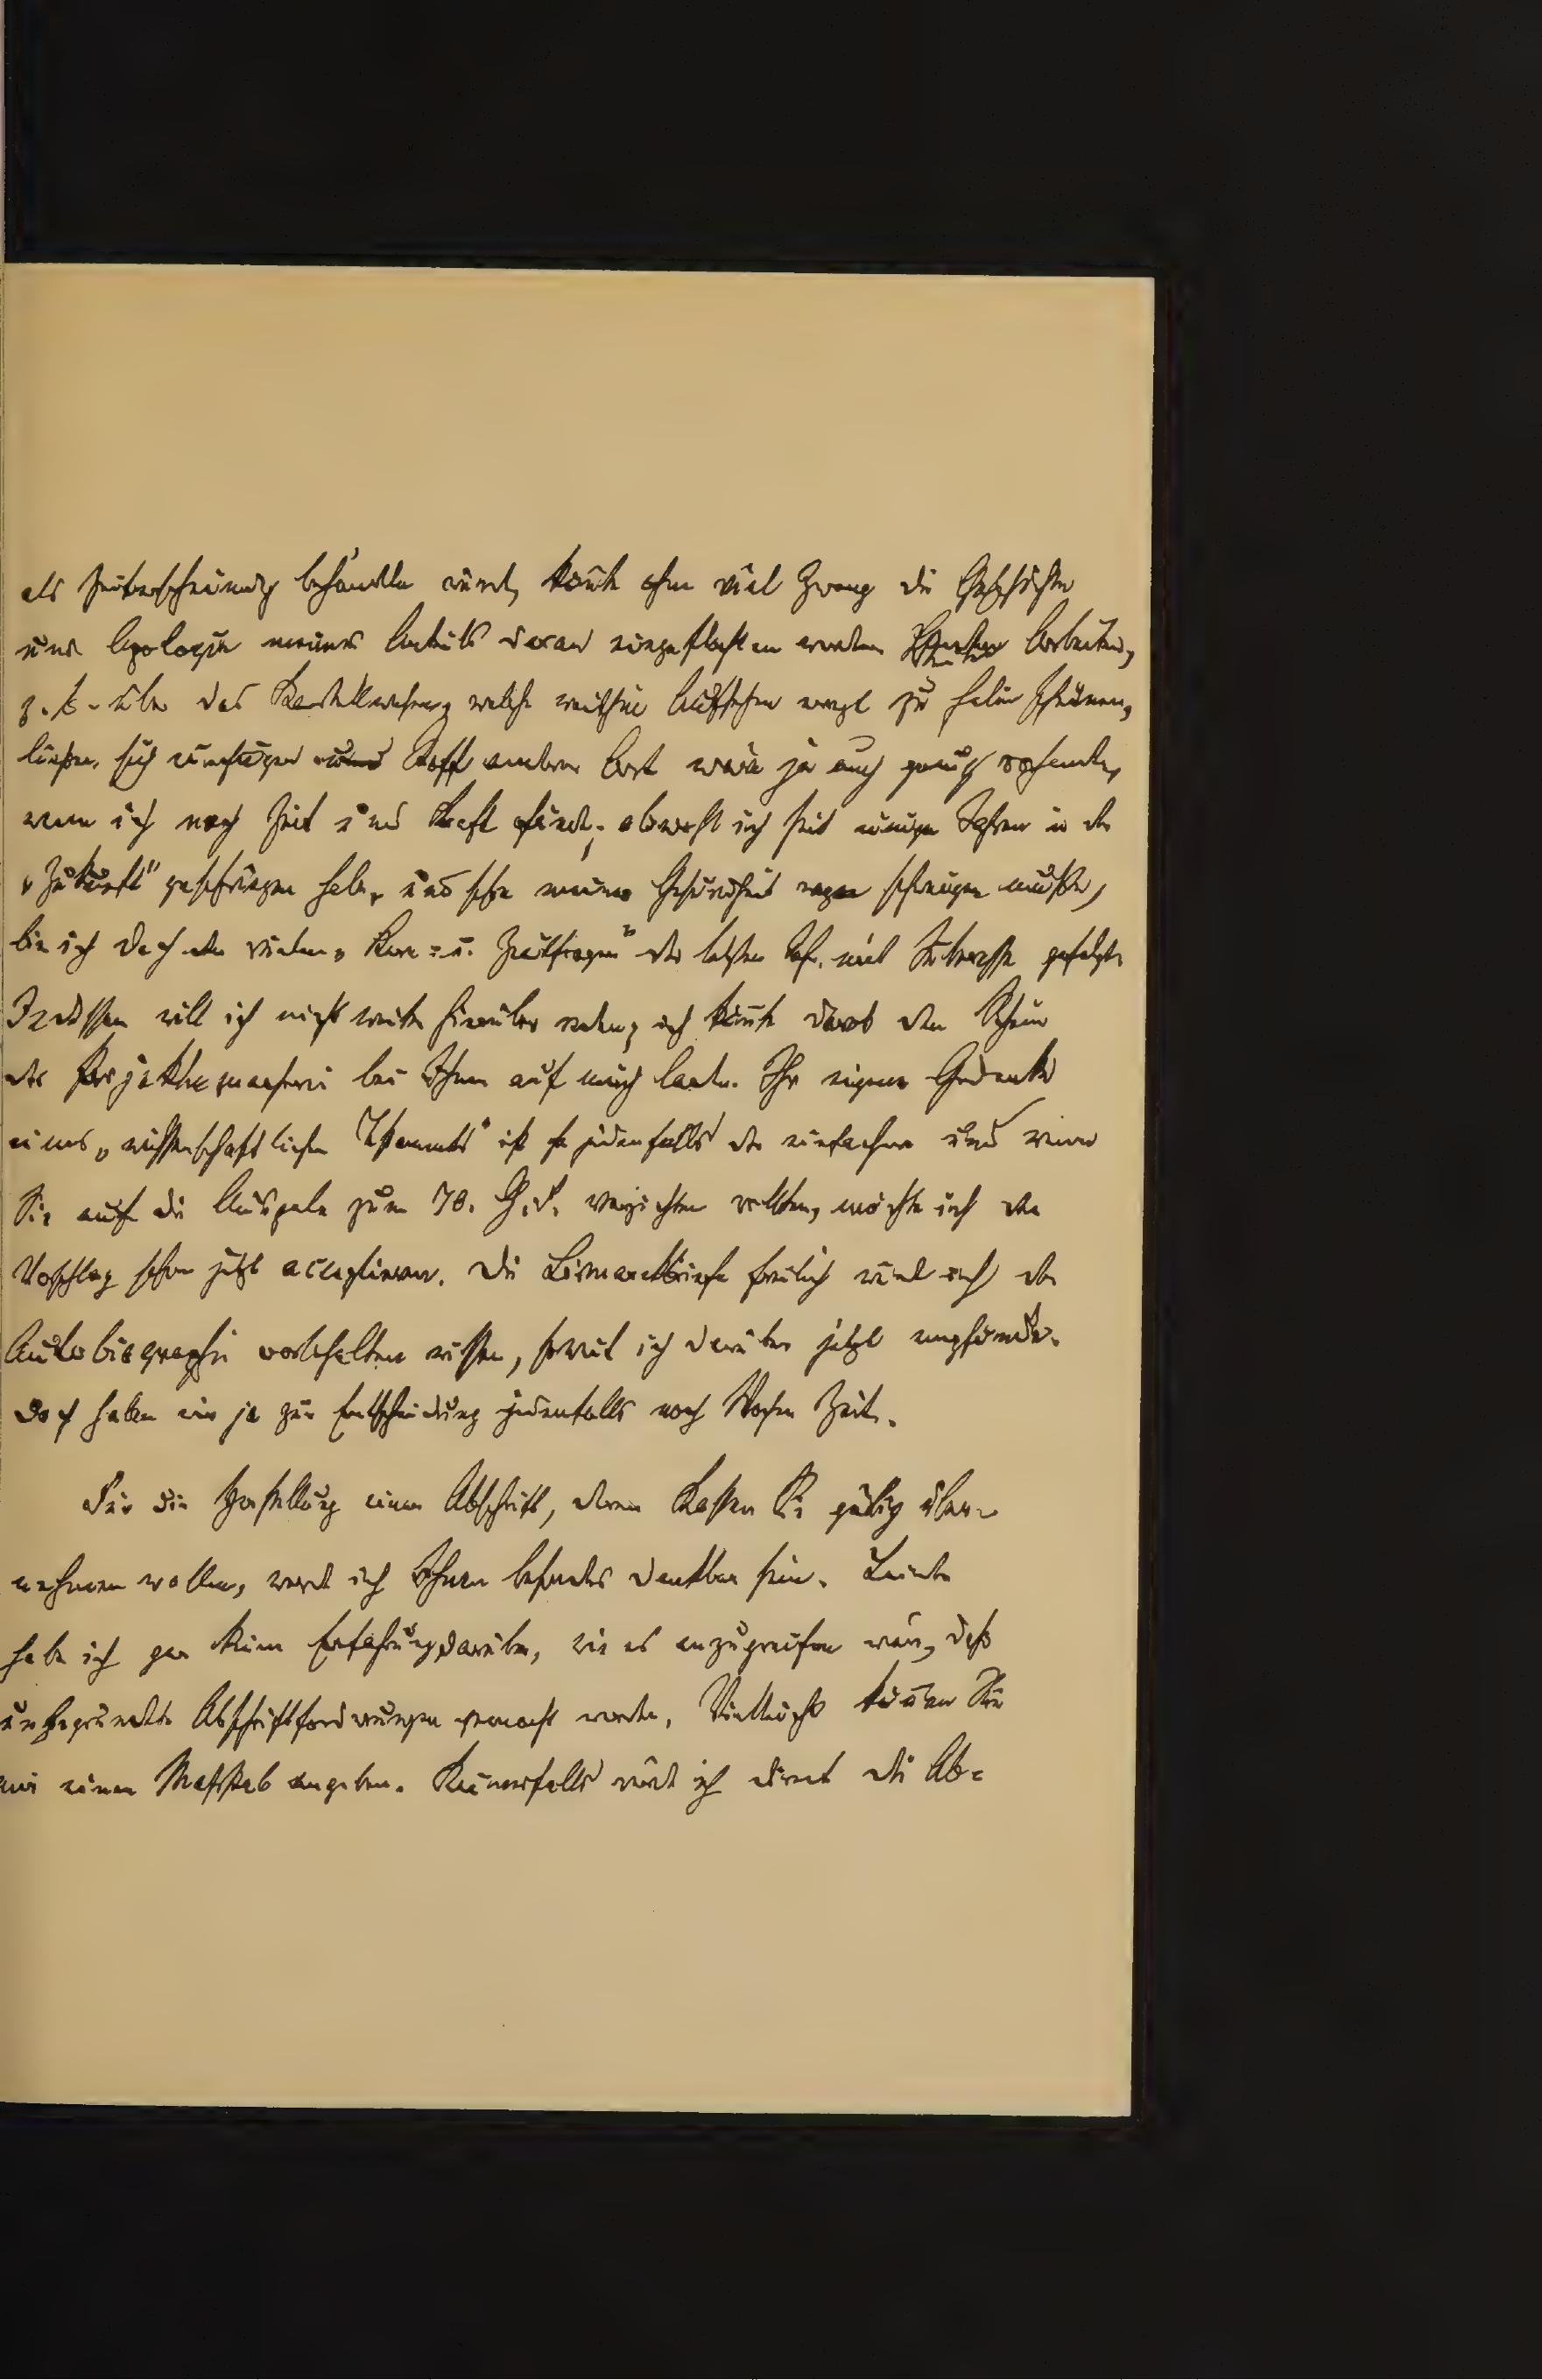 als Zeiterscheinung behandeln würde, könnte ohne viel Zwang die Geschichte
und Apologie meines Anteils daran eingeflochten werden. Arbeiten,
z. B. über das Kartellwesen, welche weithin Aufsehen erregt zu haben scheinen,
ließen sich einfügen und Stoff anderer Art wäre ja auch genug vorhanden,
wenn ich noch Zeit und Kraft fände; obwohl ich seit einigen Jahren in der
„Zukunft" geschwiegen habe, und schon meiner Gesundheit wegen schweigen mußte,
bin ich doch den vielen „Kern- u. Zeitfragen" der letzten Jahre mit Interesse gefolgt.
Indessen will ich nicht weiter hierüber reden, ich könnte darob den Schein
der Projektemacherei bei Ihnen auf mich laden. Ihr eigener Gedanke
eines „wissenschaftlichen Testaments" ist ja jedenfalls der einfachere und wenn
Sie auf die Ausgabe zum 70. G. T. verzichten wollten, möchte ich den
Vorschlag schon jetzt acceptieren. Die Bismarckbriefe freilich würde ich der
Autobiographie vorbehalten wissen, soweit ich darüber jetzt empfinde.
Doch haben wir ja zur Entscheidung jedenfalls noch Wochen Zeit.
Für die Herstellung einer Abschrift, deren Kosten Sie gütig über-
nehmen wollen, werde ich Ihnen besonders dankbar sein. Leider
habe ich gar keine Erfahrung darüber, wie es anzugreifen wäre, daß
unbegründete Abschriftforderungen gemacht werden. Vielleicht können Sie
mir einen Maßstab angeben. Keinesfalls würde ich direct die Ab-